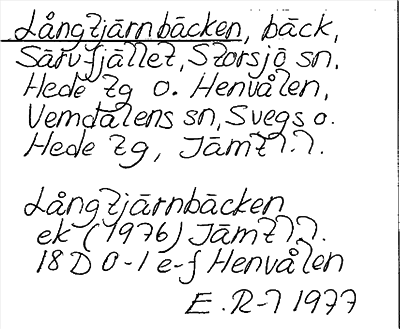 Långtjärnbäcken, bäck,
Särvfjället, Storsjö sn,
Hede tg o. Henvålen,
Vemdalens sn, Svegs o.
Hede tg, Jämtl.
Långtjärnbäcken
ek (1976) Jämtl.
18 D 0-1 e-f Henvålen
E. R-l 1977